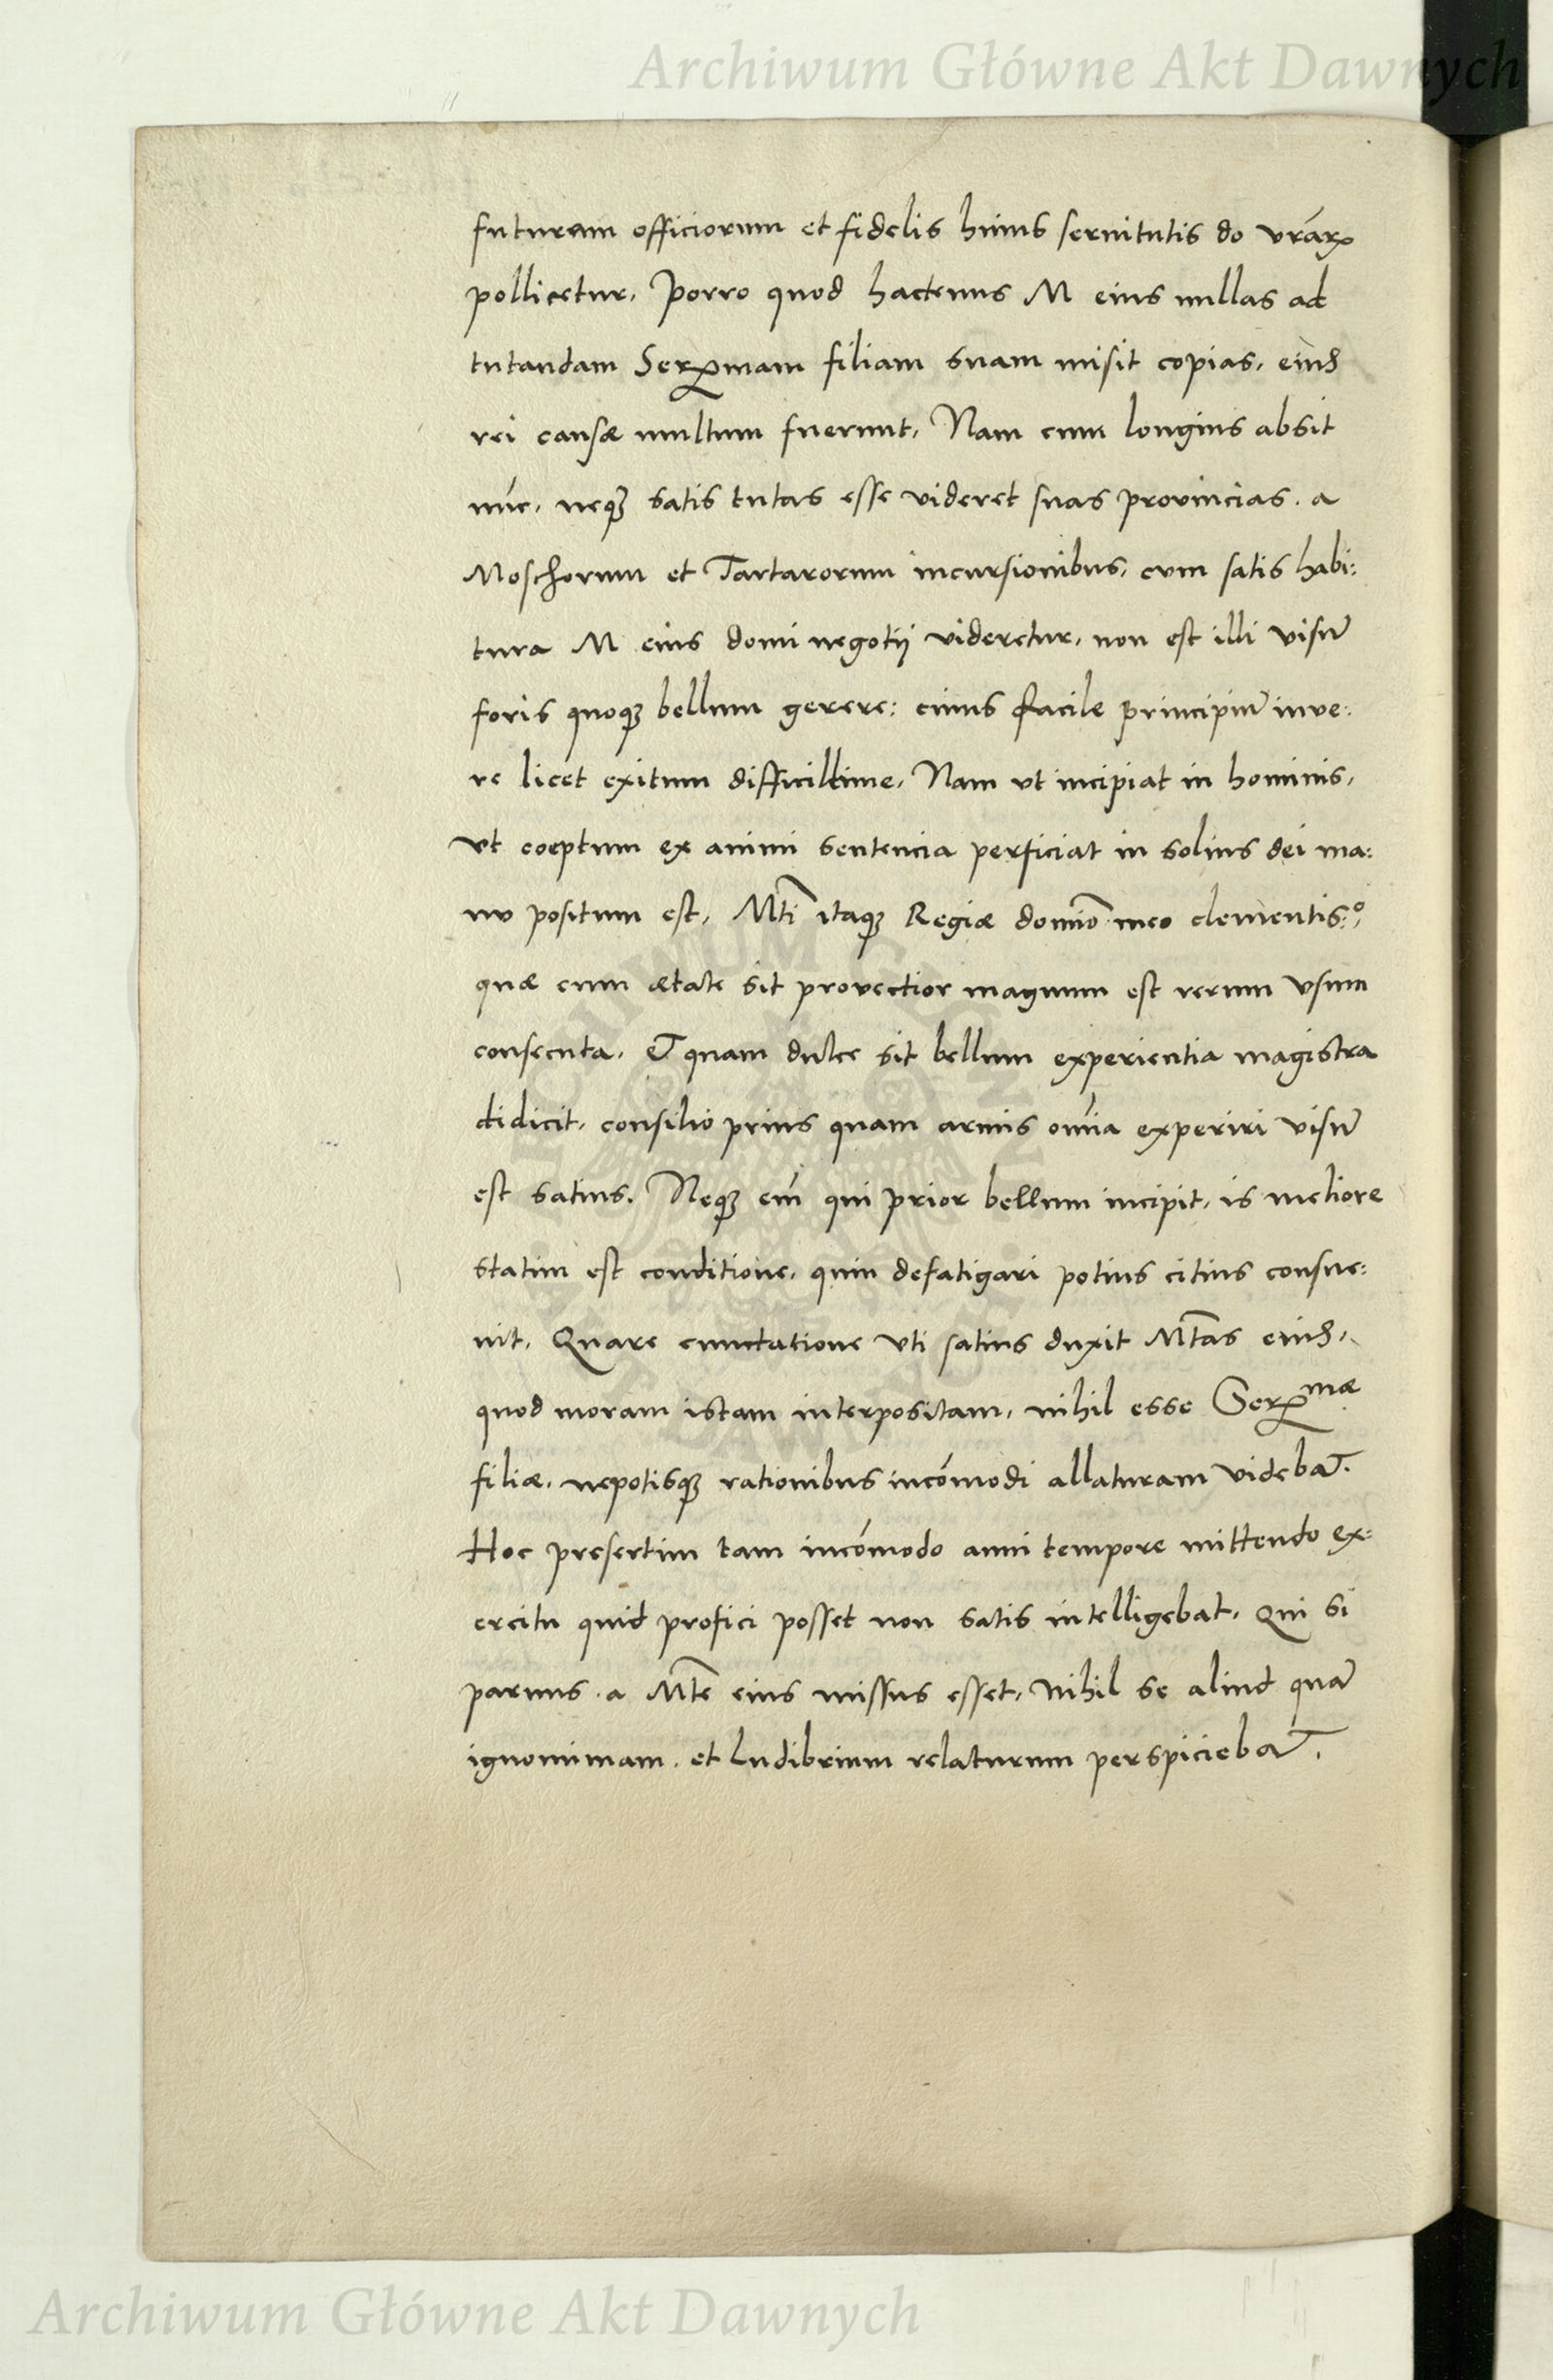 Archiwum Główne Akt Dawnych
futuram officiorum et fidelis huius seruitutis do vrãrꝝ
pollicetur, Porro quod hactenus M eius nullas ad
tutandam Serꝫmam filiam suam misit copias, eiusꝺ
rei causæ multum fuerunt, Nam cum longius absit
núc, neqꝫ satis tutas esse videret suas provincias. a
Moschorum et Tartarorum incursionibus, cvm satis habi:
tura M eius domi negotij videretur, non est illi visũ
foris quoqꝫ bellum gerere: cuius facile principiũ inve:
re licet exitum difficillime, Nam vt incipiat in hominis,
vt coeptum ex animi sentencia perficiat in solius dei ma:
nv positum est, Mti itaqꝫ Regiæ domĩo meo clementis:º,
quæ cum ætate sit provectior magnum est rerum vsum
consecuta, Et quam dulce sit bellum experientia magistra
didicit, consilio prius quam armis omĩa experiri visũ
est satius. Neqꝫ eḿ qui prior bellum incipit, is meliore
statim est conditione, quin defatigari potius citius consue:
uit, Quare cunctatione vti satius duxit Mtas eiusꝺ,
quod moram istam interpositam, nihil esse Serꝫmæ
filiæ, nepotisqꝫ rationibus incómodi allaturam videbat.
Hoc presertim tam incómodo anni tempore mittendo ex:
ercitu quid profici posset non satis intelligebat, Qui si
paruus. a Mte eius missus esset, Nihil se aliud quã
ignominiam. et ludibrium relaturum perspiciebat.
Archiwum Główne Akt Dawnych